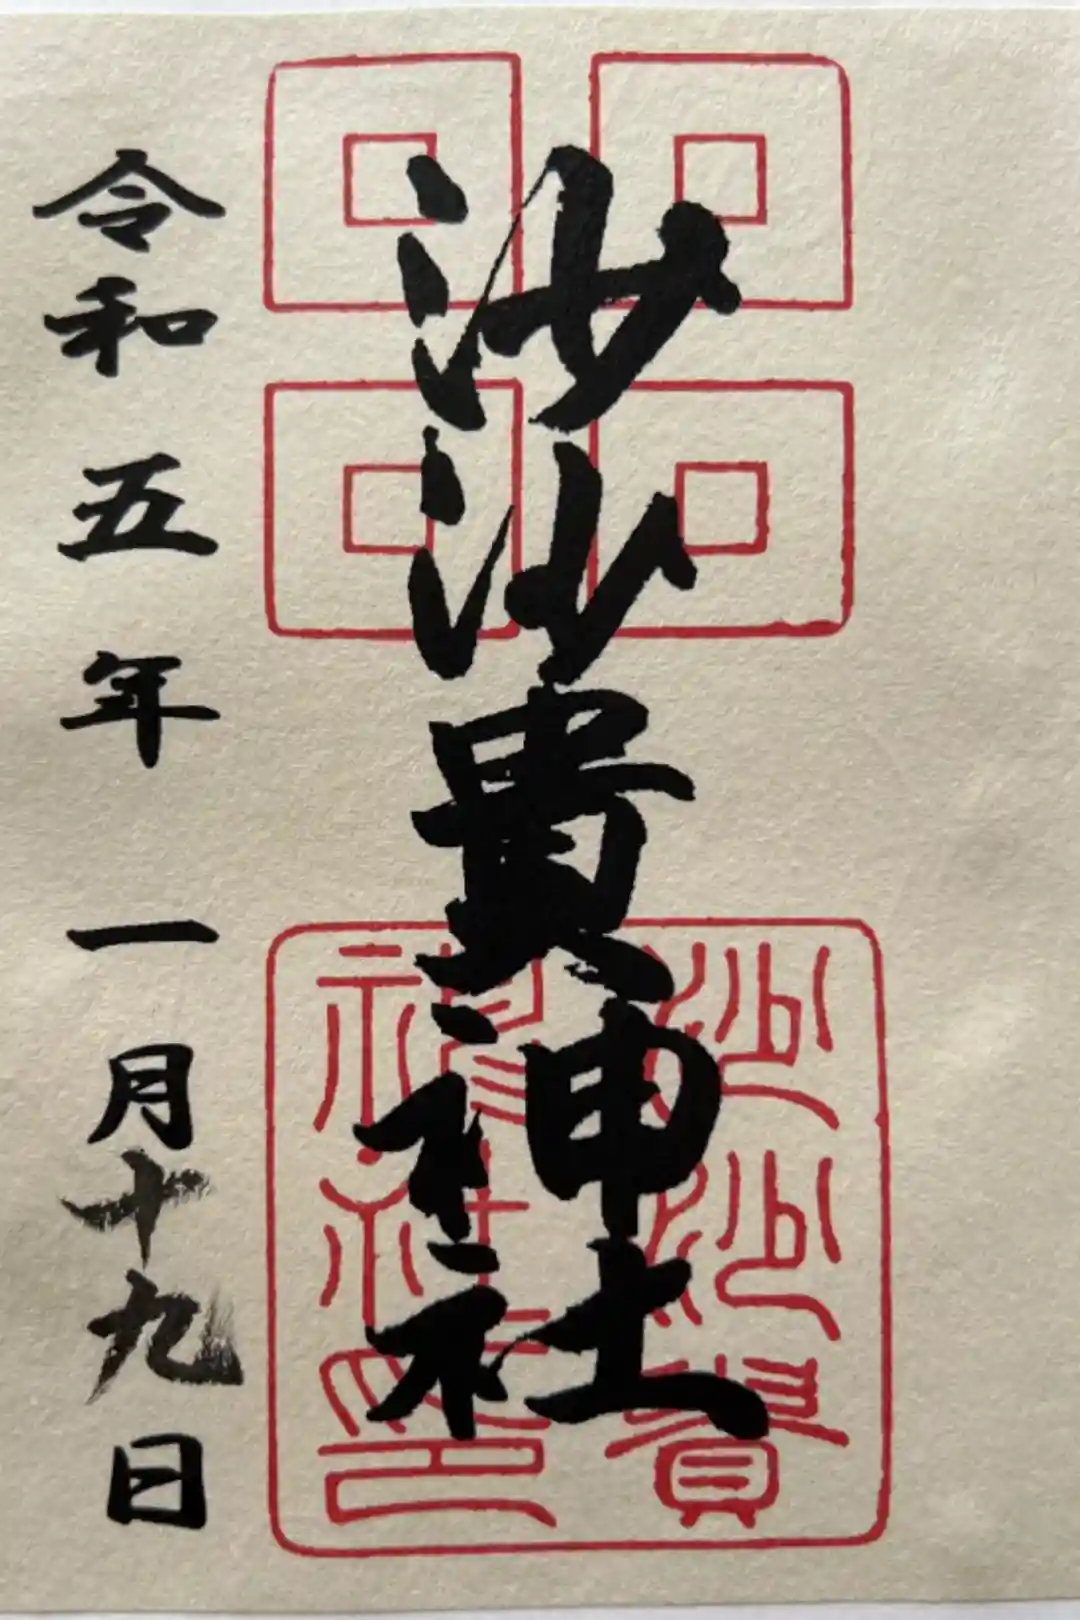 沙沙貴神社
令和五年一月十九日
沙沙貴
神社印